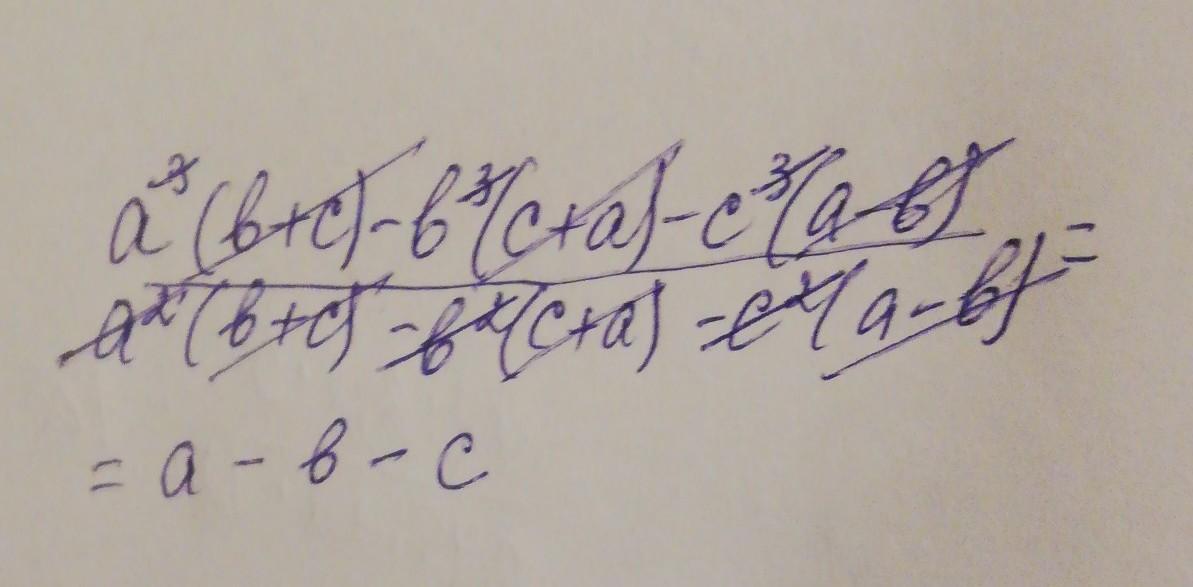 a³(b+c)-b³(c+a)-c³(a-b)
a²(b+c)-b²(c+a)-c²(a-b) =
= a - b - c